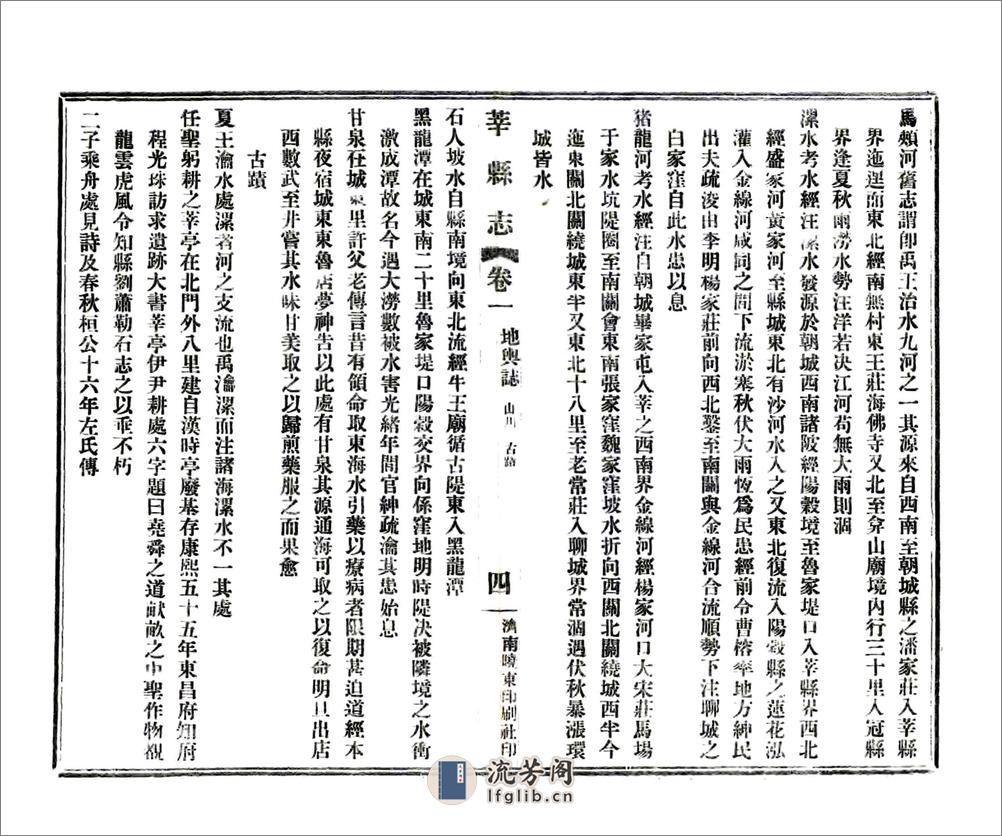 馬頰河舊志謂卽禹王治水九河之一其源來自西南至朝城縣之潘家莊入莘縣
界迤逕而東北經南無村東王莊海佛寺又北至弇山廟境內行三十里入冠縣
界逢夏秋雨澇水勢汪洋若决江河苟無大雨則涸
漯水考水經注漯水發源於朝城西南諸陂經陽穀境至魯家堤口入莘縣界西北
經盛家河黃家河至縣城東北有沙河水入之又東北復流入陽穀縣之蓮花泓
灌入金線河咸同之間下流淤塞秋伏大雨恆爲民患經前令曹榕率地方紳民
出夫疏浚由李明楊家莊前向西北鑿至南關與金線河合流順勢下注聊城之
白家窪自此水患以息
猪龍河考水經注自朝城畢家屯入莘之西南界金線河經楊家河口大宋莊馬場
于家水坑隄圈至南關會東南張家窪魏家窪坡水折向西關北關繞城西半今
迤東關北關繞城東半又東北十八里至老常莊入聊城界常涸遇伏秋暴漲環
城皆水
莘縣志 卷一 地輿誌 山川 古蹟 四 濟南 東印刷社印
石人坡水自縣南境向東北流經牛王廟循古隄東入黑龍潭
黑龍潭在城東南二十里魯家堤口陽穀交界向係窪地明時隄决被隣境之水衝
激成潭故名今遇大澇數被水害光緒年間官紳疏瀹其患始息
甘泉在城 里許父老傳言昔有領命取東海水引藥以療病者限期甚迫道經本
縣夜宿城東東魯店夢神告以此處有甘泉其源通海可取之以復命明旦出店
西數武至井嘗其水味甘美取之以歸煎藥服之而果愈
古蹟
夏王瀹水處漯者河之支流也禹瀹漯而注諸海漯水不一其處
任聖躬耕之莘亭在北門外八里建自漢時亭廢基存康熙五十五年東昌府知府
程光珠訪求遺跡大書莘亭伊尹耕處六字題曰堯舜之道畎畝之中聖作物覩
龍雲虎風令知縣劉蕭勒石志之以垂不朽
二子乘舟處見詩及春秋桓公十六年左氏傳
流芳阁
lfglib.cn